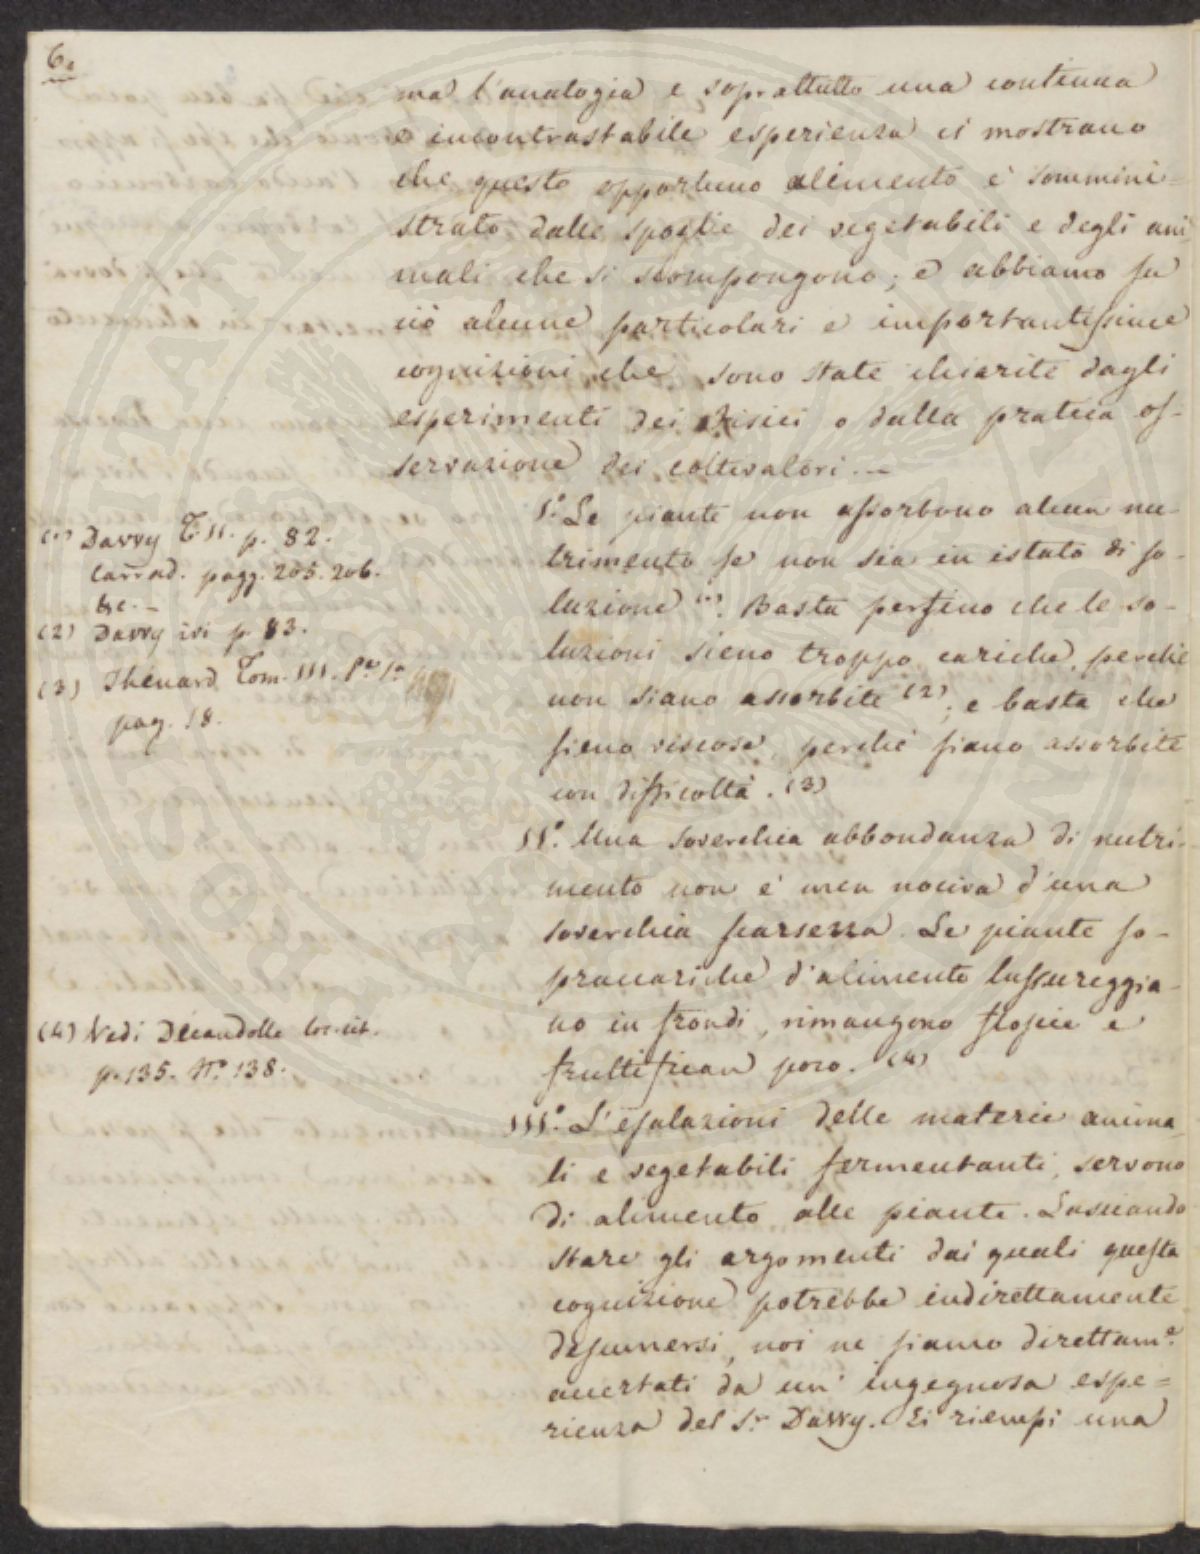 6.
ma l'analogia e soprattutto una continua
e incontrastabile esperienza ci mostrano
che questo opportuno alimento è sommini=
strato dalle spoglie dei vegetabili e degli ani
mali che si scompongono; e abbiamo su
ciò alcune particolari e importantissime
cognizioni che sono state chiarite dagli
esperimenti dei Fisici o dalla pratica os-
servazione dei coltivatori. —
I.° Le piante non assorbono alcun nu-
trimento se non sia in istato di so-
luzione (1). Basta persino che le so-
luzioni sieno troppo cariche, perchè
non siano assorbite (2), e basta che
sieno viscose, perchè siano assorbite
con difficoltà. (3)
II.° Una soverchia abbondanza di nutri-
mento non è men nociva d'una
soverchia scarsezza. Le piante so-
praccariche d'alimento lussureggia-
no in frondi, rimangono floscie e
fruttifican poco. (4)
III.° L'esalazioni delle materie anima
li e vegetabili fermentanti, servono
di alimento alle piante. Lasciando
stare gli argomenti dai quali questa
cognizione potrebbe indirettamente
desumersi, noi ne siamo direttam.e
accertati da un' ingegnosa espe=
rienza del S.r Davvy. Ei riempì una
(1) Davvy T. II. p. 82.
Carrad. pagg. 205. 206.
&c. —
(2) Davvy ivi p. 83.
(3) Thénard Tom. III. P.te 1.a
pag. 18.
(4) Vedi Decandolle loc. cit.
p. 135. N.° 138.